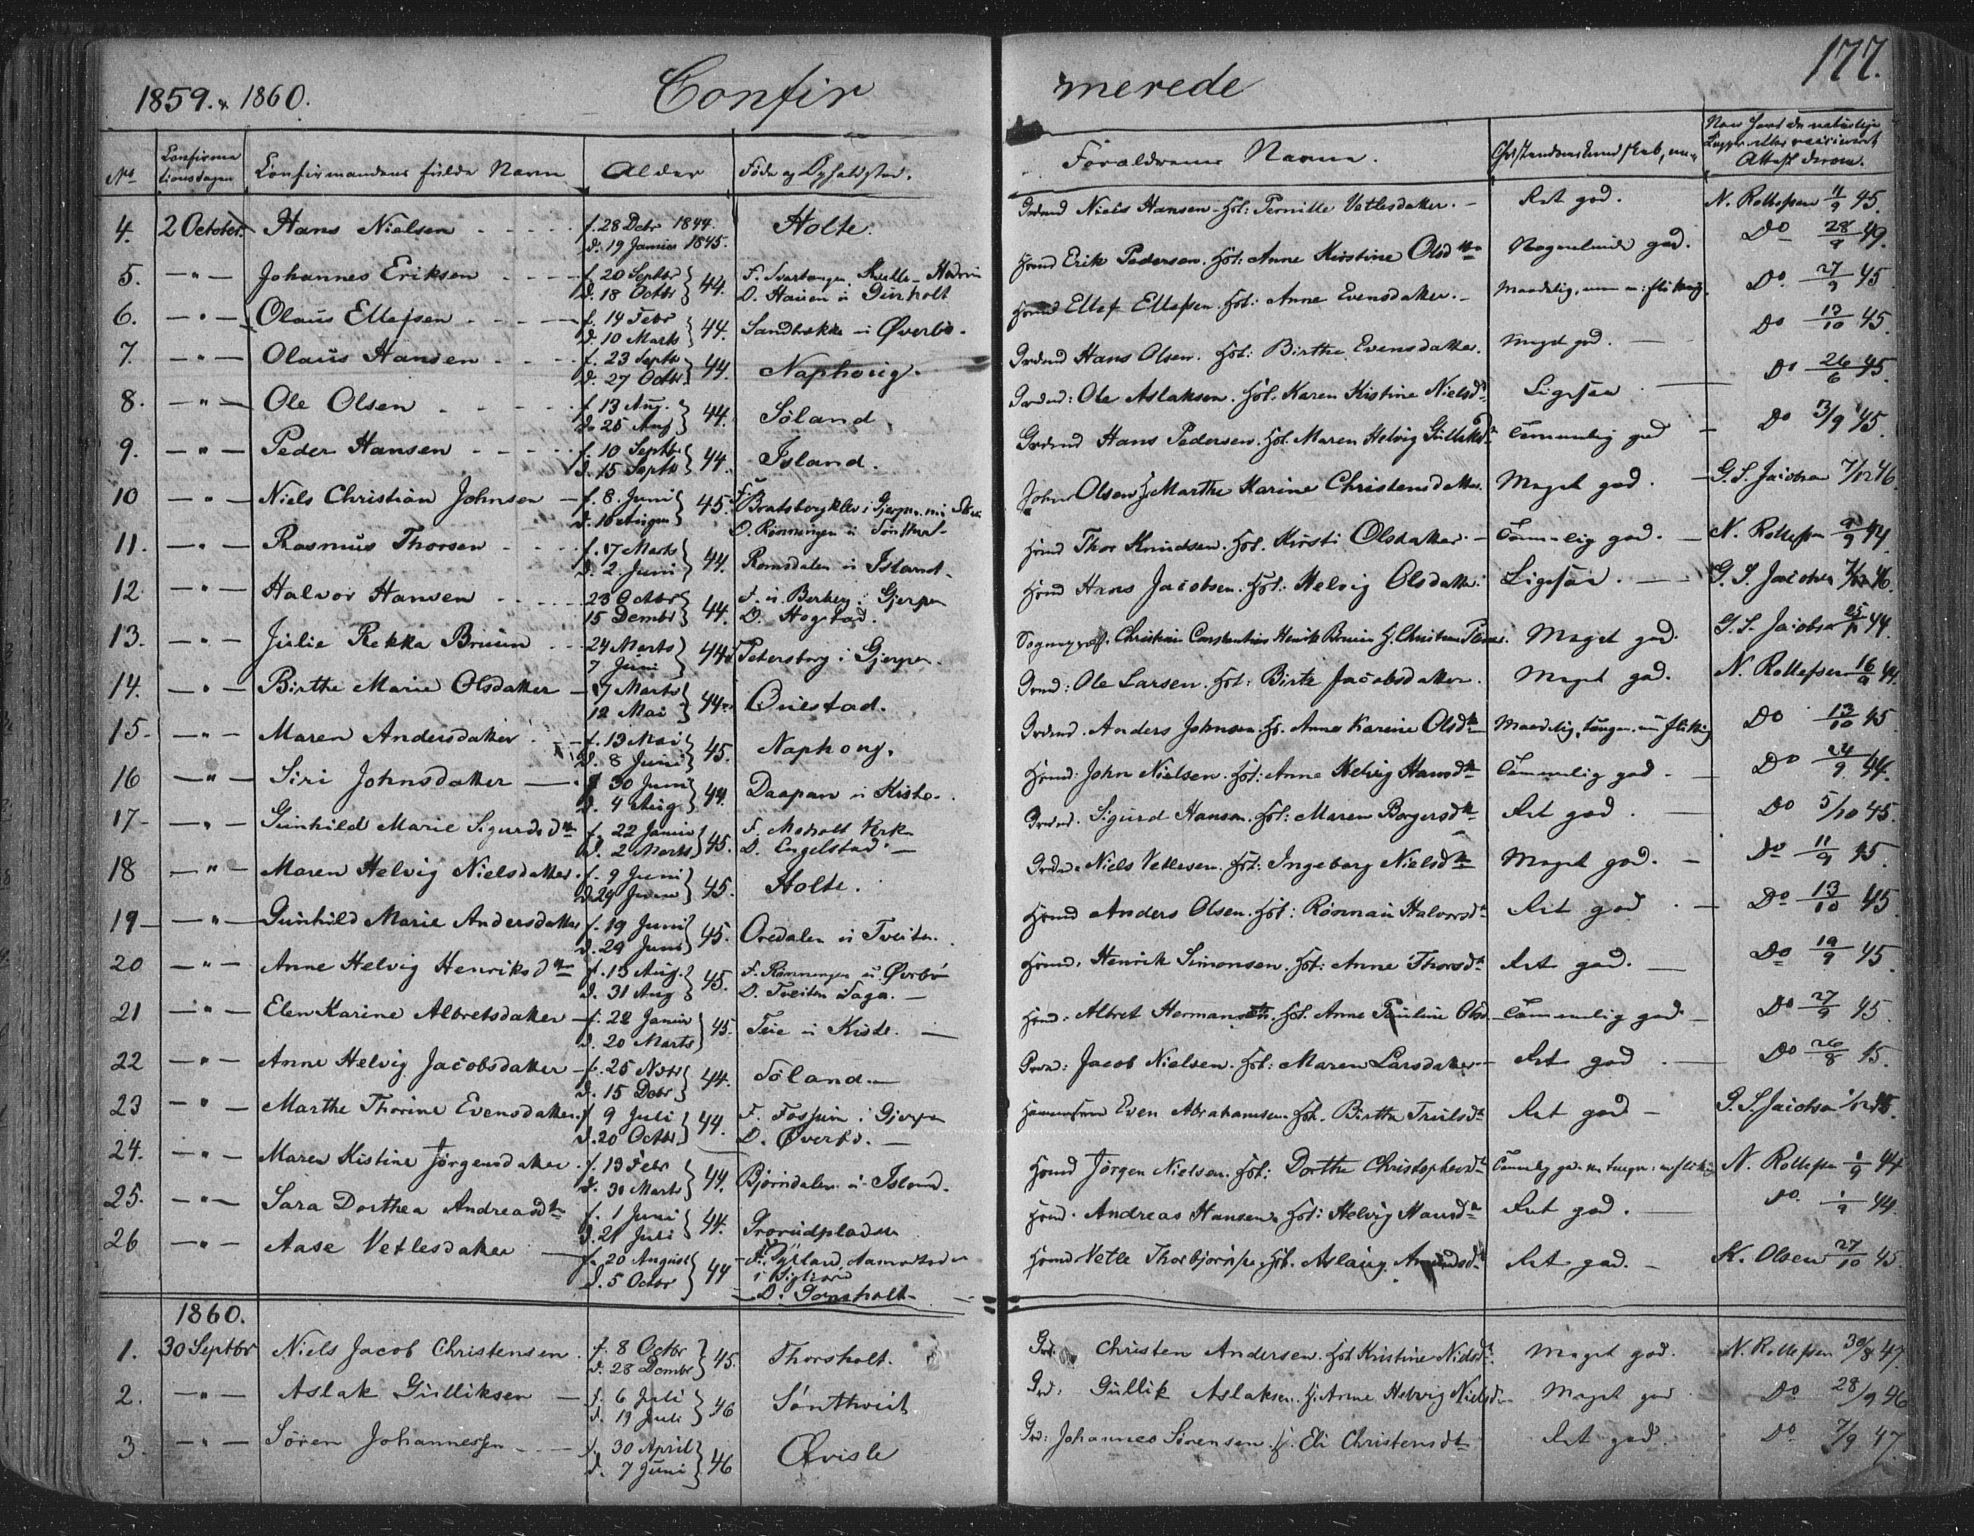 1859. & 1860. Confir merede 177.
No Confirmationsdagen Confirmandens fulde Navn Alder Føde og Opholdssted. Forældrenes Navne. Christendomskundskab,
4. 2 October. Hans Nielsen f. 28 Debr 1844 d. 19 Januar 1845. Holte. Niels Hansen. Hst: Pernille Vetlesdatter. Ret god. N. Rollefsen 11/9 45.
5. — " — Johannes Eriksen f. 20 Septbr d. 18 Octbr } 44. Erik Pedersen. Hst: Anne Kirstine Olsdtr god. Do 28/9 49.
6. — " — Olaus Ellefsen f. 14 Febr d. 10 Marts } 44. Sandbække u Øverbø. Ellef Ellefsen. Hst: Anne Evensdatter. Do. 27/9 45
7. — " — Olaus Hansen f. 23 Septbr d. 27 Octbr } 44. Naphoug. Hans Olsen. Hst: Birthe Evensdatter. Meget god. Do 13/10 45.
8. — " — Ole Olsen f. 13 Aug. d. 25 Aug } 44. Island. Ole Aslaksen. Hst. Karen Kistine Nielsd Ligesaa Do 26/6 45.
9. — " — Peder Hansen f. 10 Septbr d. 15 Septbr } 44. Island. Hans Pedersen. Hst. Maren Helvig Gulliksd Temmelig god Do /9 45.
10 — " — Niels Christian Johnsen f. 8 Juni d. 16 Augu } 45. F Bratsbergklev i Gjerpen D. Rønningen u Sønthvet John Olsen H. Marthe Karine Christensdatter. Meget god. G. S. Jacobsen 7/12 46.
11. — " — Rasmus Thorsen f. 17 Marts d. 2. Juni } 44. Romsdalen u Island. Thor Knudsen. Hst. Kirsti Olsdatter. Temmelig god. N. Rollefsen /9 44.
12. — " — Halvor Hansen 23 Octbr 15 Dembr } 44. F. u. Berberg i Gjerpen D. Hogstad. Hans Jacobsen. Hst: Helvig Olsdatter. Ligesaa. G. S. Jacobsen
13. — " — Julie Rekka Bruun 24 Marts 7 Juni } 44. Petersborg i Gjerpen. Christian Constantius Henrik Bruun H. Meget god. G. S. Jacobsen 44.
14. — " — Birthe Marie Olsdatter 7 Marts 12 Mai } 44. Ole Larsen. Hst: Birte Jacobsdatter. Meget god. N. Rollefsen 16/9 44.
15. — " — Maren Andersdatter f. 13 Mai d. 8 Juni } 45. Naphoug. Anders Johnsen. Hst. Anne Karine Olsdtr Do 13/10 45
16 — " — Siri Johnsdatter f 30 Juni d. 4 Aug } 44. Daapan u Kiste. John Nielsen. Hst: Anne Helvig Hansdtr Temmelig god. Do 24/9 44.
17 — " — Gunhild Marie Sigurdsdtr f. 22 Januar d. 2 Marts } 45. F. Moholt D. Engelstad Sigurd Hansen. Hst: Maren Borgersdtr Ret god. Do 5/10 45.
18 — " — Maren Helvig Nielsdatter. f. 9 Juni d. 24 Juni } 45. Holte. Niels Vetlesen. Hst: Ingeborg Nielsdtr Meget god. Do 11/9 45.
19 — " — Gunhild Marie Andersdatter f. 19 Juni d. 29 Juni } 45. Oredalen u Tveiten. Anders Olsen. Hst: Halvorsdtr Ret god. Do 13/10 45.
20 — " — Anne Helvig Henriksdtr f. 13 Aug. d. 31 Aug } 45. F. Rønningen u. Øverbø D. Tveiten Saga. Henrik Simonsen. Hst: Anne Thorsdtr Ret god. Do 19/9 45.
21 — " — Elen Karine Albretsdatter f. 22 Januar d. 20 Marts } 45. Teie u Kiste. Albret Hermansen. Hst. Anne Pauline Olsd Temmelig god Do 27/9 45.
22 — " — Anne Helvig Jacobsdatter f. 25 Novbr d. 15 Debr } 44. Island. Jacob Nielsen. Hst: Maren Larsdatter Ret god. Do 26/8 45.
23 — " — Marthe Thorine Evensdatter. f 9 Juli d. 20 Octbr } 44. F. Fossum i Gjerpen D. Øverbø. Even Abrahamsen Hst. Birthe Trulsdtr Ret god G. S. Jacobsen
24. — " — Maren Kistine Jørgensdatter f. 13 Febr d. 30 Marts } 44. Bjørndalen u Island. Jørgen Nielsen. Hst: Dorthe Christophersdtr N. Rollefsen 1/9 44
25. — " — Sara Dorthea Andreasdtr f. 1 Juni d. 21 Juli } 44. Grorudpladsen Andreas Hansen. Hst: Helvig Hansdtr Ret god. Do. 1/9 44.
26 — " — Aase Vetlesdatter f. 20 August d. 5 Octbr } 44 D. Vetle Thorbjørns. Hst. Aslaug Amundsd Ret god. K. Olsen 27/10 45
1860.
1. 30 Septbr Niels Jacob Christensen. f. 8 Octbr d. 28 Dembr } 45. Thorsholt. Christen Andersen. Hst Kristine Nielsdtr. Meget god. N. Rollefsen 30/8 47.
2. — " — Aslak Gulliksen f. 6 Juli d. 19 Juli } 46 Sønthveit Gullik Aslaksen. H. Anne Helvig Nielsd Meget god Do 28/9 46
3. — " — Søren Johannessen f. 30 April d. 7 Juni } 46 Qvisle Johannes Sørensen. H. Eli Christensdtr Ret god. Do 7/9 47.